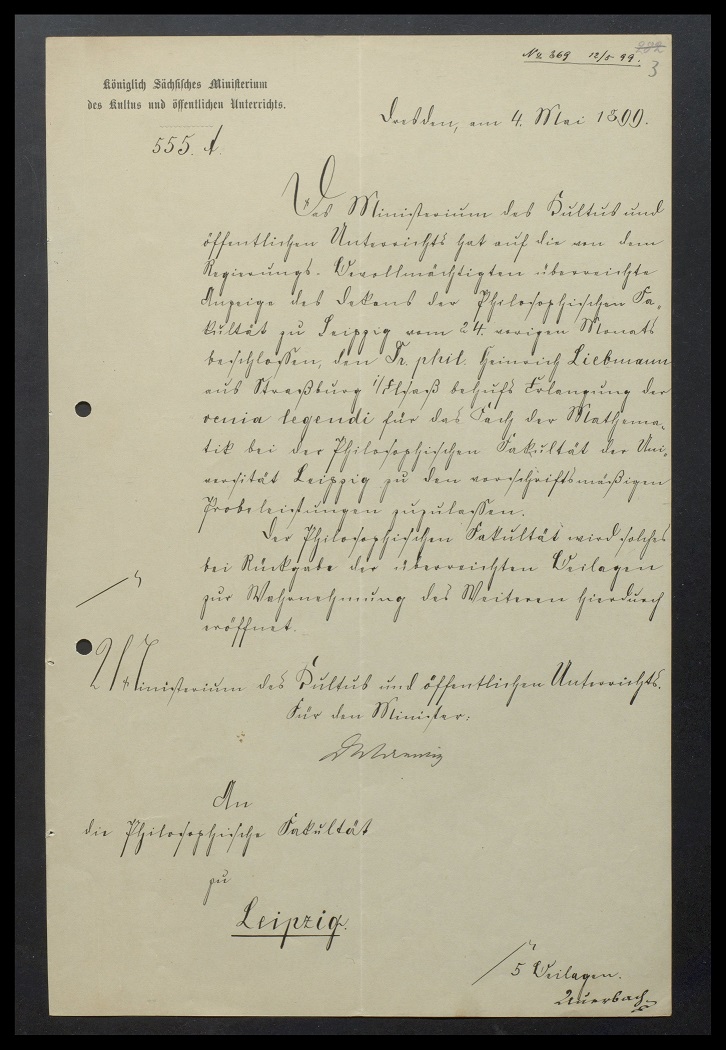 No 369 12/5 99.
282
3
Königlich Sächsisches Ministerium
des Kultus und öffentlichen Unterrichts.
555. A.
Dresden, am 4. Mai 1899.
Das Ministerium des Kultus und
öffentlichen Unterrichts hat auf die von dem
Regierungs-Bevollmächtigten überreichte
Anzeige des Dekans der Philosophischen Fa-
kultät zu Leipzig vom 24. vorigen Monats
beschlossen, den Dr. phil. Heinrich Liebmann
aus Straßburg i/Elsaß behufs Erlangung der
venia legendi für das Fach der Mathema-
tik bei der Philosophischen Fakultät der Uni-
versität Leipzig zu den vorschriftsmäßigen
Probeleistungen zuzulassen.
Der Philosophischen Fakultät wird solches
bei Rückgabe der überreichten Beilagen
zur Wahrnehmung des Weiteren hierdurch
eröffnet.
Ministerium des Kultus und öffentlichen Unterrichts.
Für den Minister:
An
die Philosophische Fakultät
zu
Leipzig.
5 Beilagen.
Auerbach